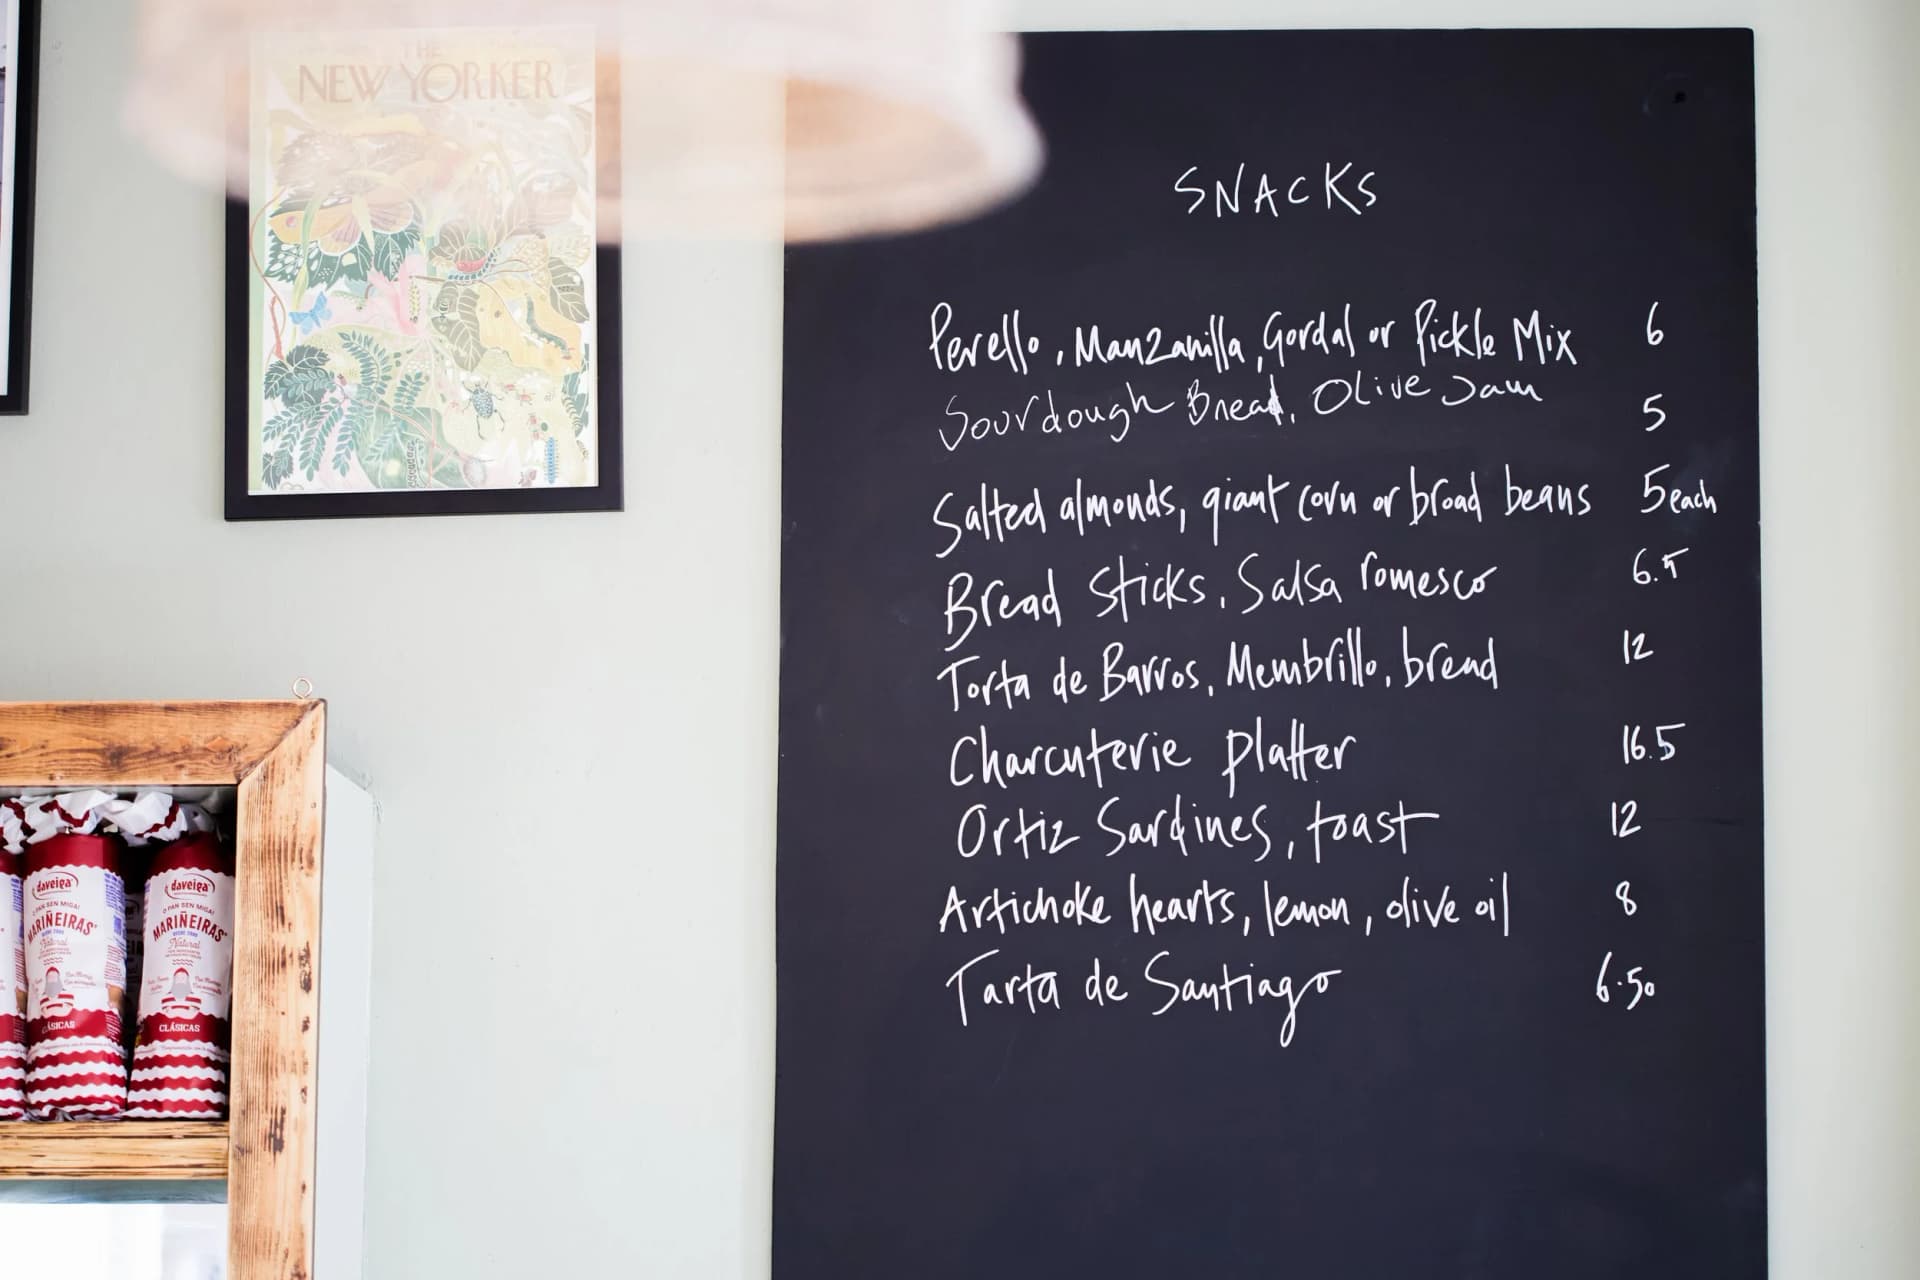 THE
NEW YORKER
SNACKS
Perello, Manzanilla, Gordal or Pickle Mix 6
Sourdough Bread, Olive Jam 5
Salted almonds, giant corn or broad beans 5 each
Bread sticks, Salsa romesco 6.5
Torta de Barros, Membrillo, bread 12
Charcuterie platter 16.5
Ortiz Sardines, toast 12
Artichoke hearts, lemon, olive oil 8
Tarta de Santiago 6.50
daveiga
O PAN SEN MIGA!
MARIÑEIRAS
Natural
CLÁSICAS
daveiga
O PAN SEN MIGA!
MARIÑEIRAS
Natural
CLÁSICAS